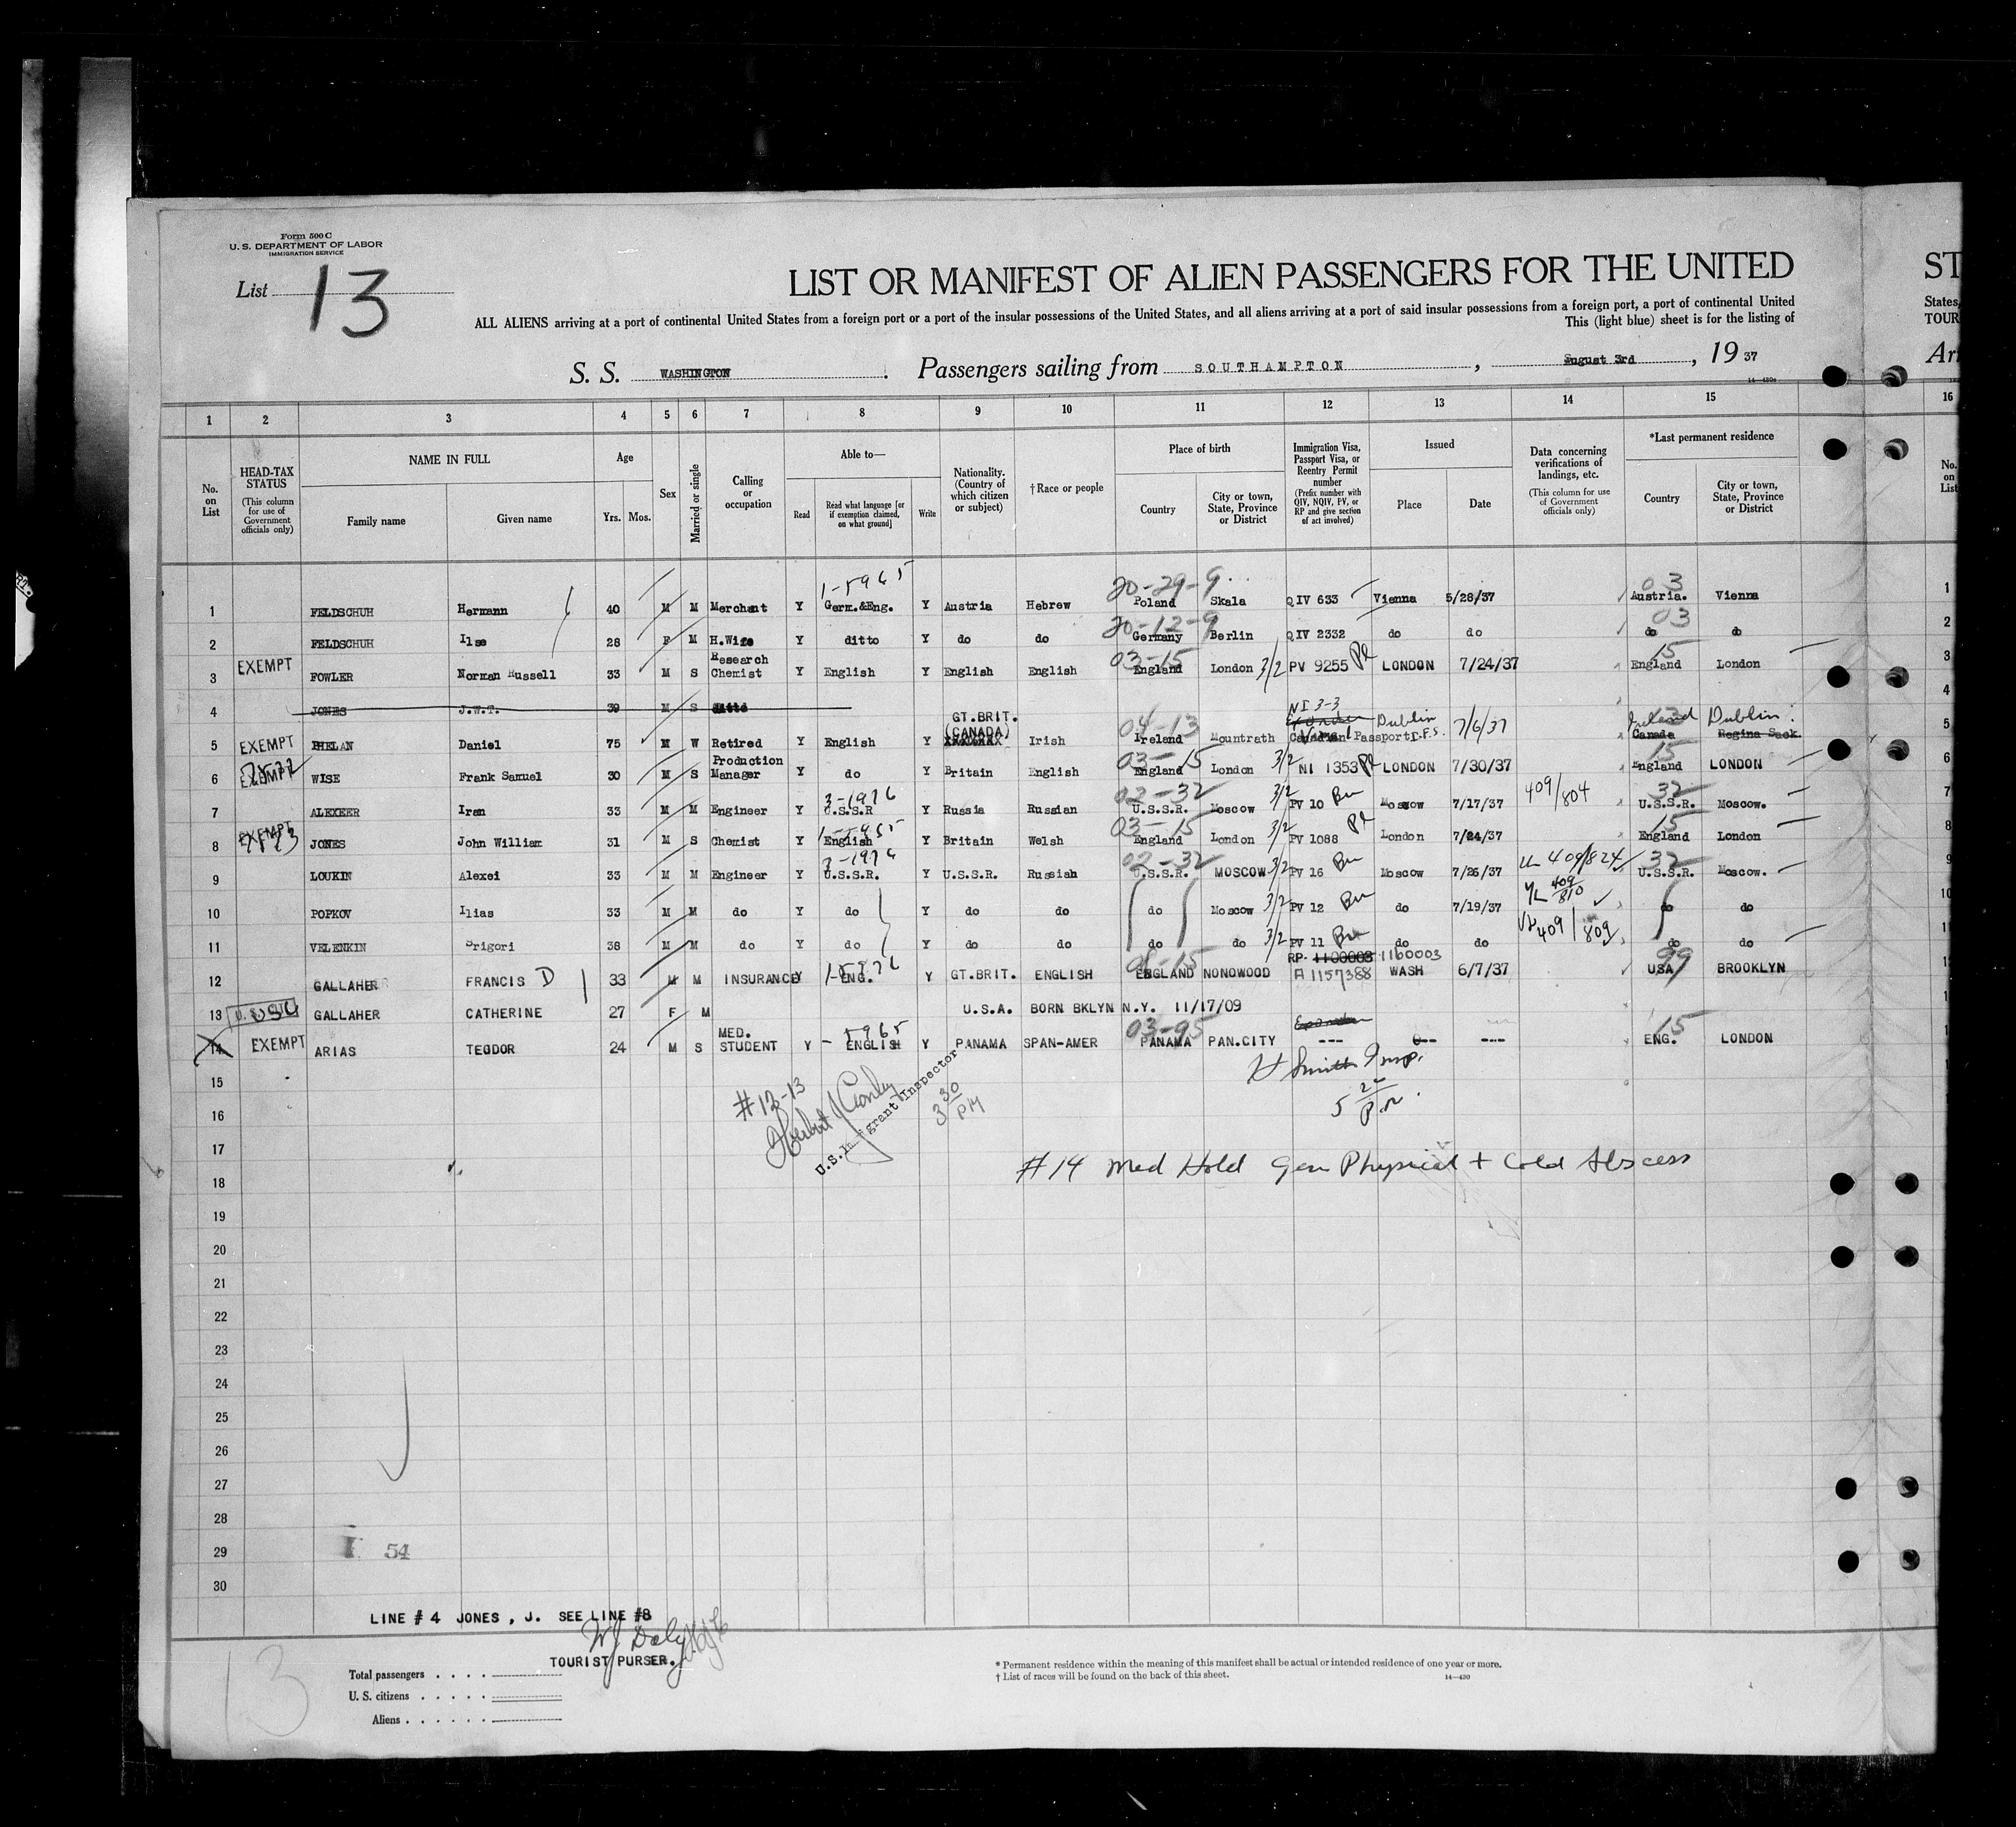 Form 500 C
U. S. DEPARTMENT OF LABOR
IMMIGRATION SERVICE
List 13
LIST OR MANIFEST OF ALIEN PASSENGERS FOR THE UNITED
ST
ALL ALIENS arriving at a port of continental United States from a foreign port or a port of the insular possessions of the United States, and all aliens arriving at a port of said insular possessions from a foreign port, a port of continental United
States,
This (light blue) sheet is for the listing of
TOUR
S. S. WASHINGTON. Passengers sailing from SOUTHAMPTON, August 3rd, 19 37
Arr
14—430c
1 2 3 4 5 6 7 8 9 10 11 12 13 14 15 16
No. on List
HEAD-TAX STATUS (This column for use of Government officials only)
NAME IN FULL
Family name Given name
Age
Yrs. Mos.
Sex
Married or single
Calling or occupation
Able to—
Read
Read what language [or if exemption claimed, on what ground]
Write
Nationality. (Country of which citizen or subject)
†Race or people
Place of birth
Country
City or town, State, Province or District
Immigration Visa, Passport Visa, or Reentry Permit number (Prefix number with QIV, NQIV, PV, or RP and give section of act involved)
Issued
Place Date
Data concerning verifications of landings, etc. (This column for use of Government officials only)
*Last permanent residence
Country
City or town, State, Province or District
No. on List
1-5965 20-29-9 03
1 FELDSCHUH Hermann 40 M M Merchant Y Germ.&Eng. Y Austria Hebrew Poland Skala QIV 633 Vienna 5/28/37 Austria. Vienna 1
20-12-9 03
2 FELDSCHUH Ilse 28 F M H.Wife Y ditto Y do do Germany Berlin QIV 2332 do do do do 2
03-15 15
3 EXEMPT FOWLER Norman Russell 33 M S Research Chemist Y English Y English English England London 3/2 PV 9255 LONDON 7/24/37 England London 3
4 JONES J.W.T. 39 M S ditto 4
NI 3-3
04-13
5 EXEMPT PHELAN Daniel 75 M W Retired Y English Y GT.BRIT. (CANADA) Irish Ireland Mountrath Canadian Passport Dublin I.F.S. 7/6/37 Canada Regina Sask. Ireland Dublin 5
03-15 15
6 EXEMPT WISE Frank Samuel 30 M S Production Manager Y do Y Britain English England London 3/2 NI 1353 LONDON 7/30/37 England LONDON 6
3-1976 02-32 32
7 ALEXEER Iran 33 M M Engineer Y U.S.S.R Y Russia Russian U.S.S.R. Moscow 3/2 PV 10 Moscow 7/17/37 409/804 U.S.S.R. Moscow. 7
1-5965 03-15 15
8 EXEMPT JONES John William 31 M S Chemist Y English Y Britain Welsh England London 3/2 PV 1088 London 7/24/37 England London 8
3-1976 02-32 32
9 LOUKIN Alexei 33 M M Engineer Y U.S.S.R. Y U.S.S.R. Russian U.S.S.R. MOSCOW 3/2 PV 16 Moscow 7/26/37 409/824 U.S.S.R. Moscow. 9
10 POPKOV Ilias 33 M M do Y do Y do do do Moscow 3/2 PV 12 do 7/19/37 409/810 do do 10
11 VELENKIN Grigori 38 M M do Y do Y do do do do 3/2 PV 11 do do 409/809 do do 11
12 GALLAHER FRANCIS D 33 M M INSURANCE Y ENG. Y GT.BRIT. ENGLISH ENGLAND NONOWOOD RP- 1100003 1160003 A 1157388 WASH 6/7/37 USA 99 BROOKLYN
13 USC GALLAHER CATHERINE 27 F M U.S.A. BORN BKLYN N.Y. 11/17/09
5965 03-95 15
14 EXEMPT ARIAS TEODOR 24 M S MED. STUDENT Y ENGLISH Y PANAMA SPAN-AMER PANAMA PAN.CITY --- --- ENG. LONDON
15
16
17
18
19
20
21
22
23
24
25
26
27
28
29
30
#12-13
U.S.Immigrant Inspector
3 30 PM
H Smith Insp.
5 20 P.M.
#14 Med Hold Gen Physical + Cold Abscess
54
LINE # 4 JONES , J. SEE LINE #8
W Daly
TOURIST PURSER.
13
Total passengers
U. S. citizens
Aliens
* Permanent residence within the meaning of this manifest shall be actual or intended residence of one year or more.
† List of races will be found on the back of this sheet.
14—430